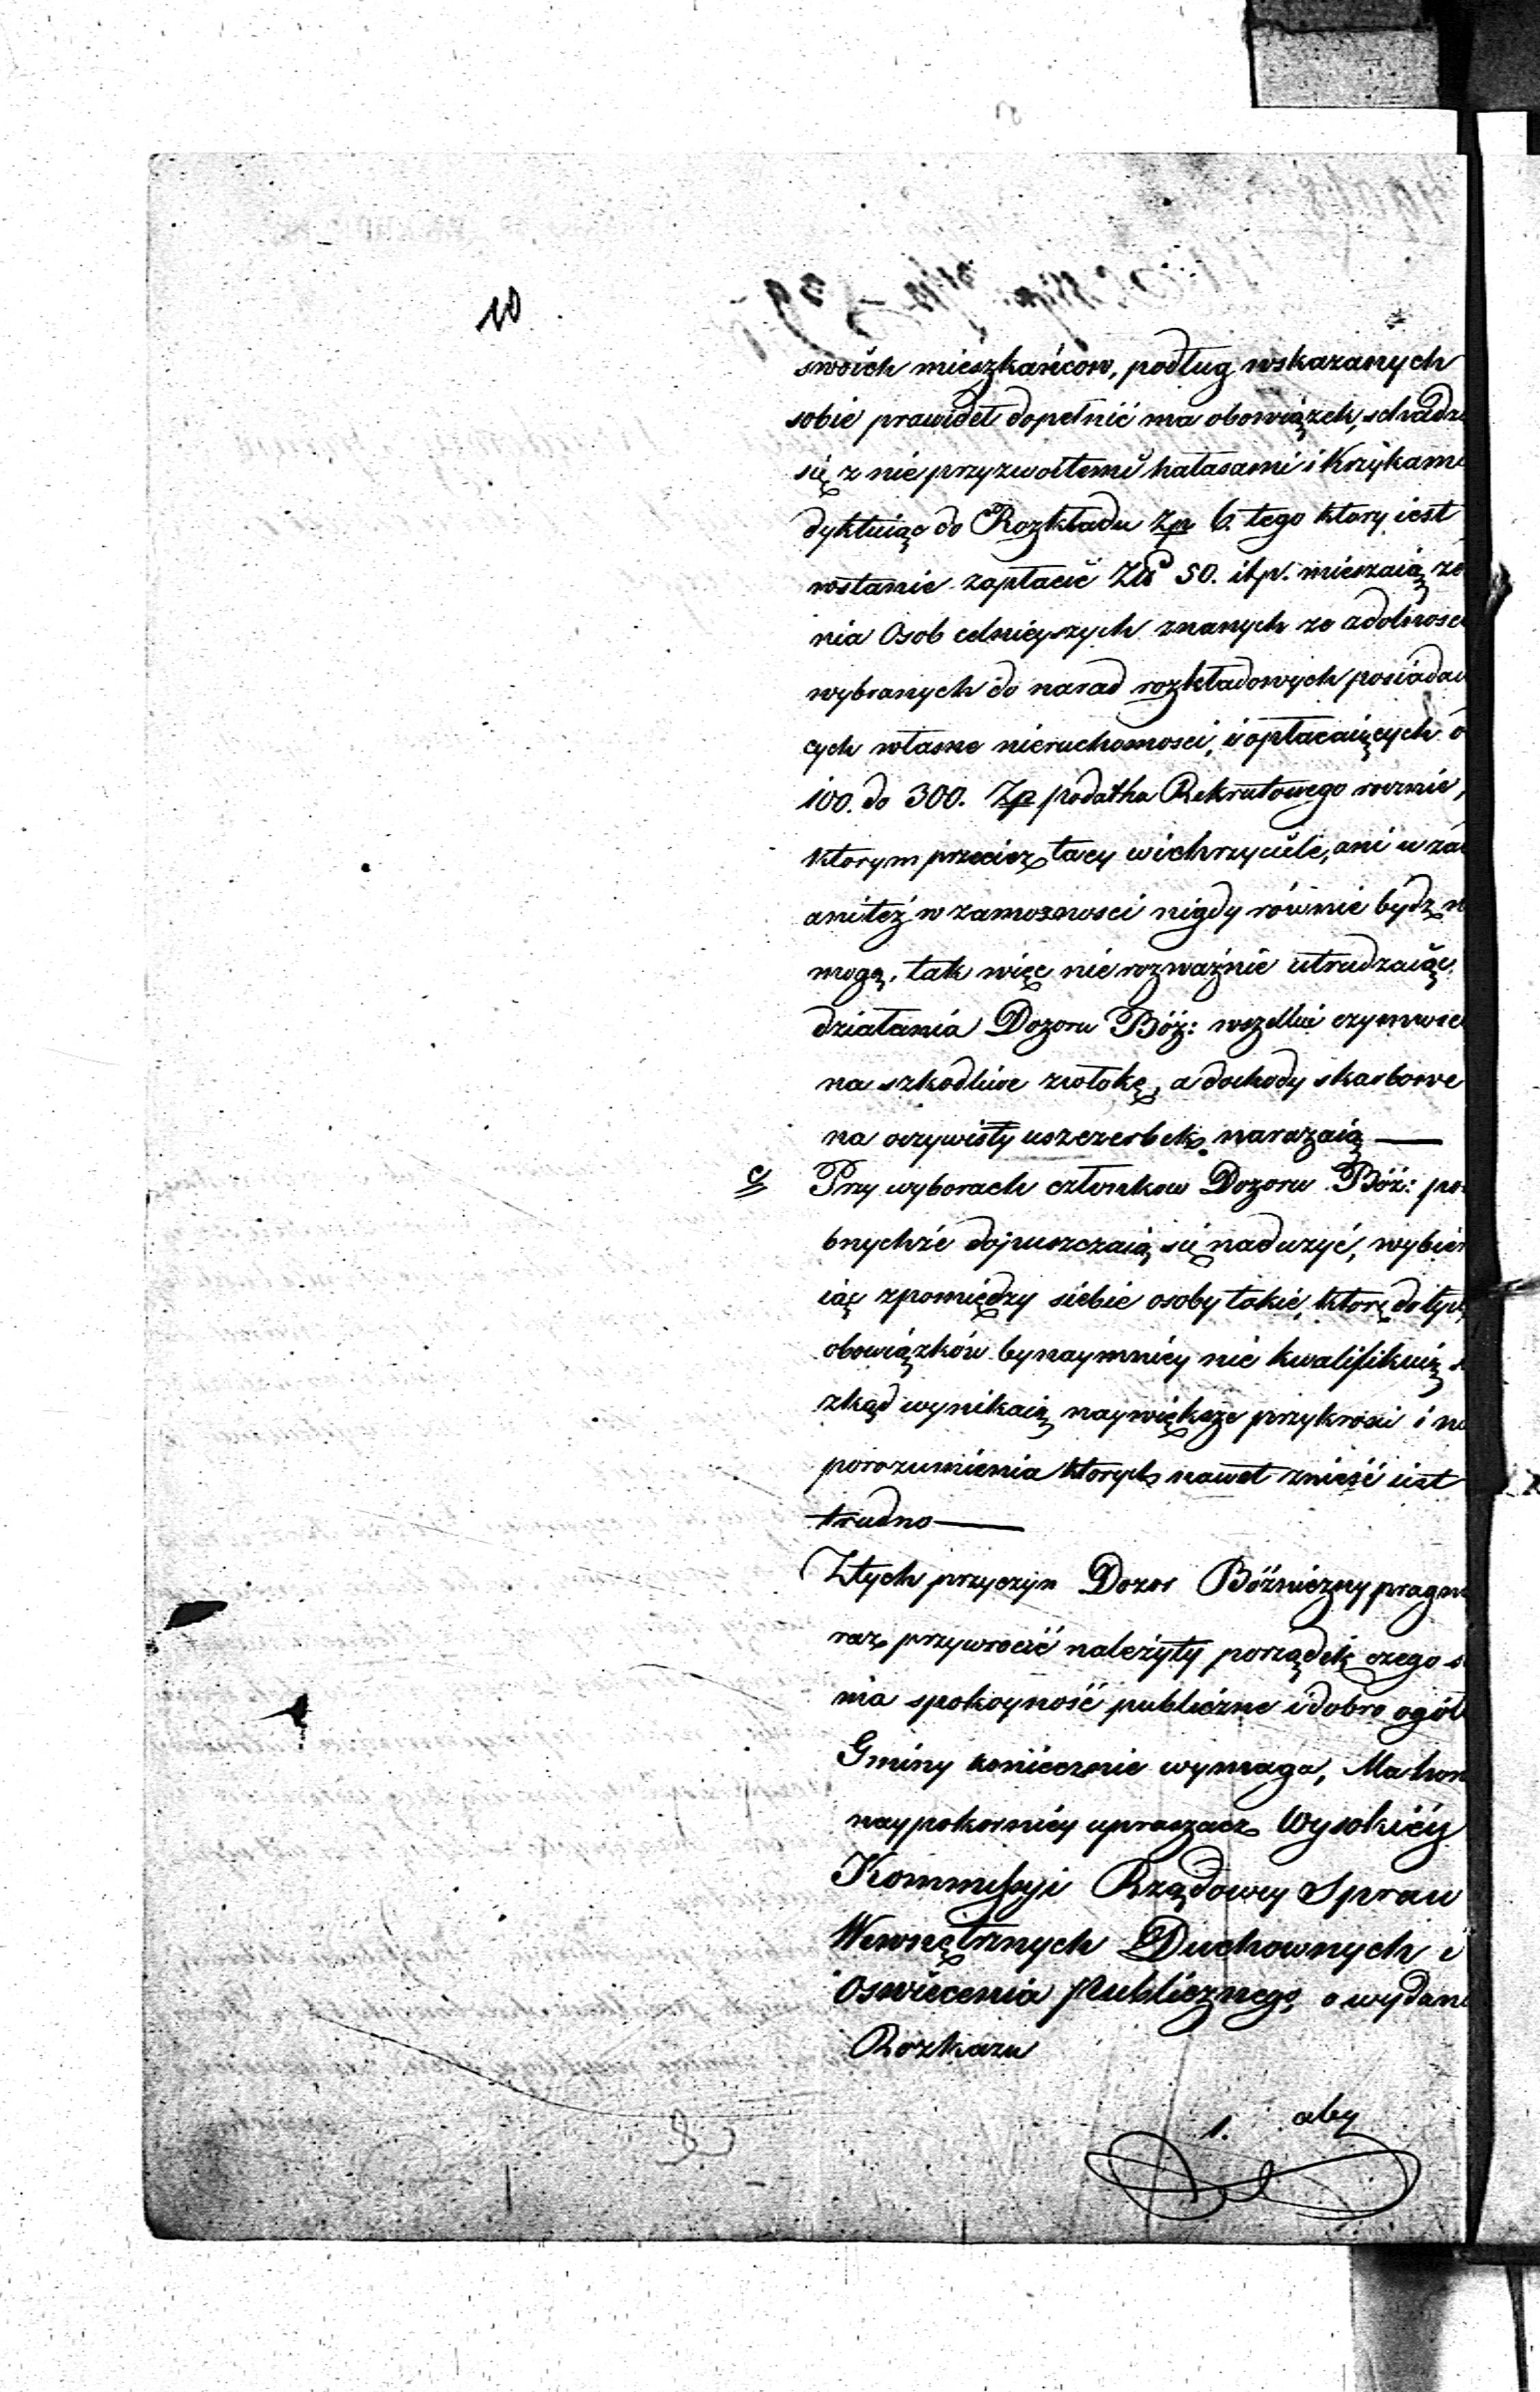 10
swoich mieszkańcow, podług wskazanych
sobie prawideł dopełnić ma obowiązek, schadza
się z nie przyzwoitemi hałasami i Krzykami
dyktuiąc do Rozkładu Zp 6. tego ktory iest
wstanie zapłacić Złp 50. itp. mieszaią ze
nia Osob celnieyszych znanych ze zdolnosci
wybranych do narad rozkładowych posiadaią
cych własne nieruchomosci, i opłacaiących o
100. do 300. Zp podatka Rekrutowego rocznie,
ktorym przecież tacy wichrzyciele, ani w za
ani też w zamoznosci nigdy równie bydź n
mogą, tak więc nie rozważnie utrudzaiąc
działania Dozoru Bóż: wszelkie czynnosci
na szkodliwe zwłokę, a dochody skarbowe
na oczywisty uszczerbek narażaią —
c/ Przy wyborach członkow Dozoru Bóż: po
bnychże dopuszczaią się nadużyć, wybier
iąc zpomiędzy siebie osoby takie, które do tych
obowiązków bynaymniey nie kwalifikuią s
zkąd wynikaią naywiększe przykrosci i nie
porozumienia ktorych nawet znieść iest
trudno —
Ztych przyczyn Dozor Bóżniczny pragn
raz przywrocić należyty porządek czego s
ma spokoyność publiczne i dobro ogół
Gminy koniecznie wymaga, Ma hon
naypokorniey upraszać Wysokiéy
Kommissyi Rządowey Spraw
Wewnętrznych Duchownych i
Oswiecenia Publicznego, o wydani
Rozkazu
1. aby